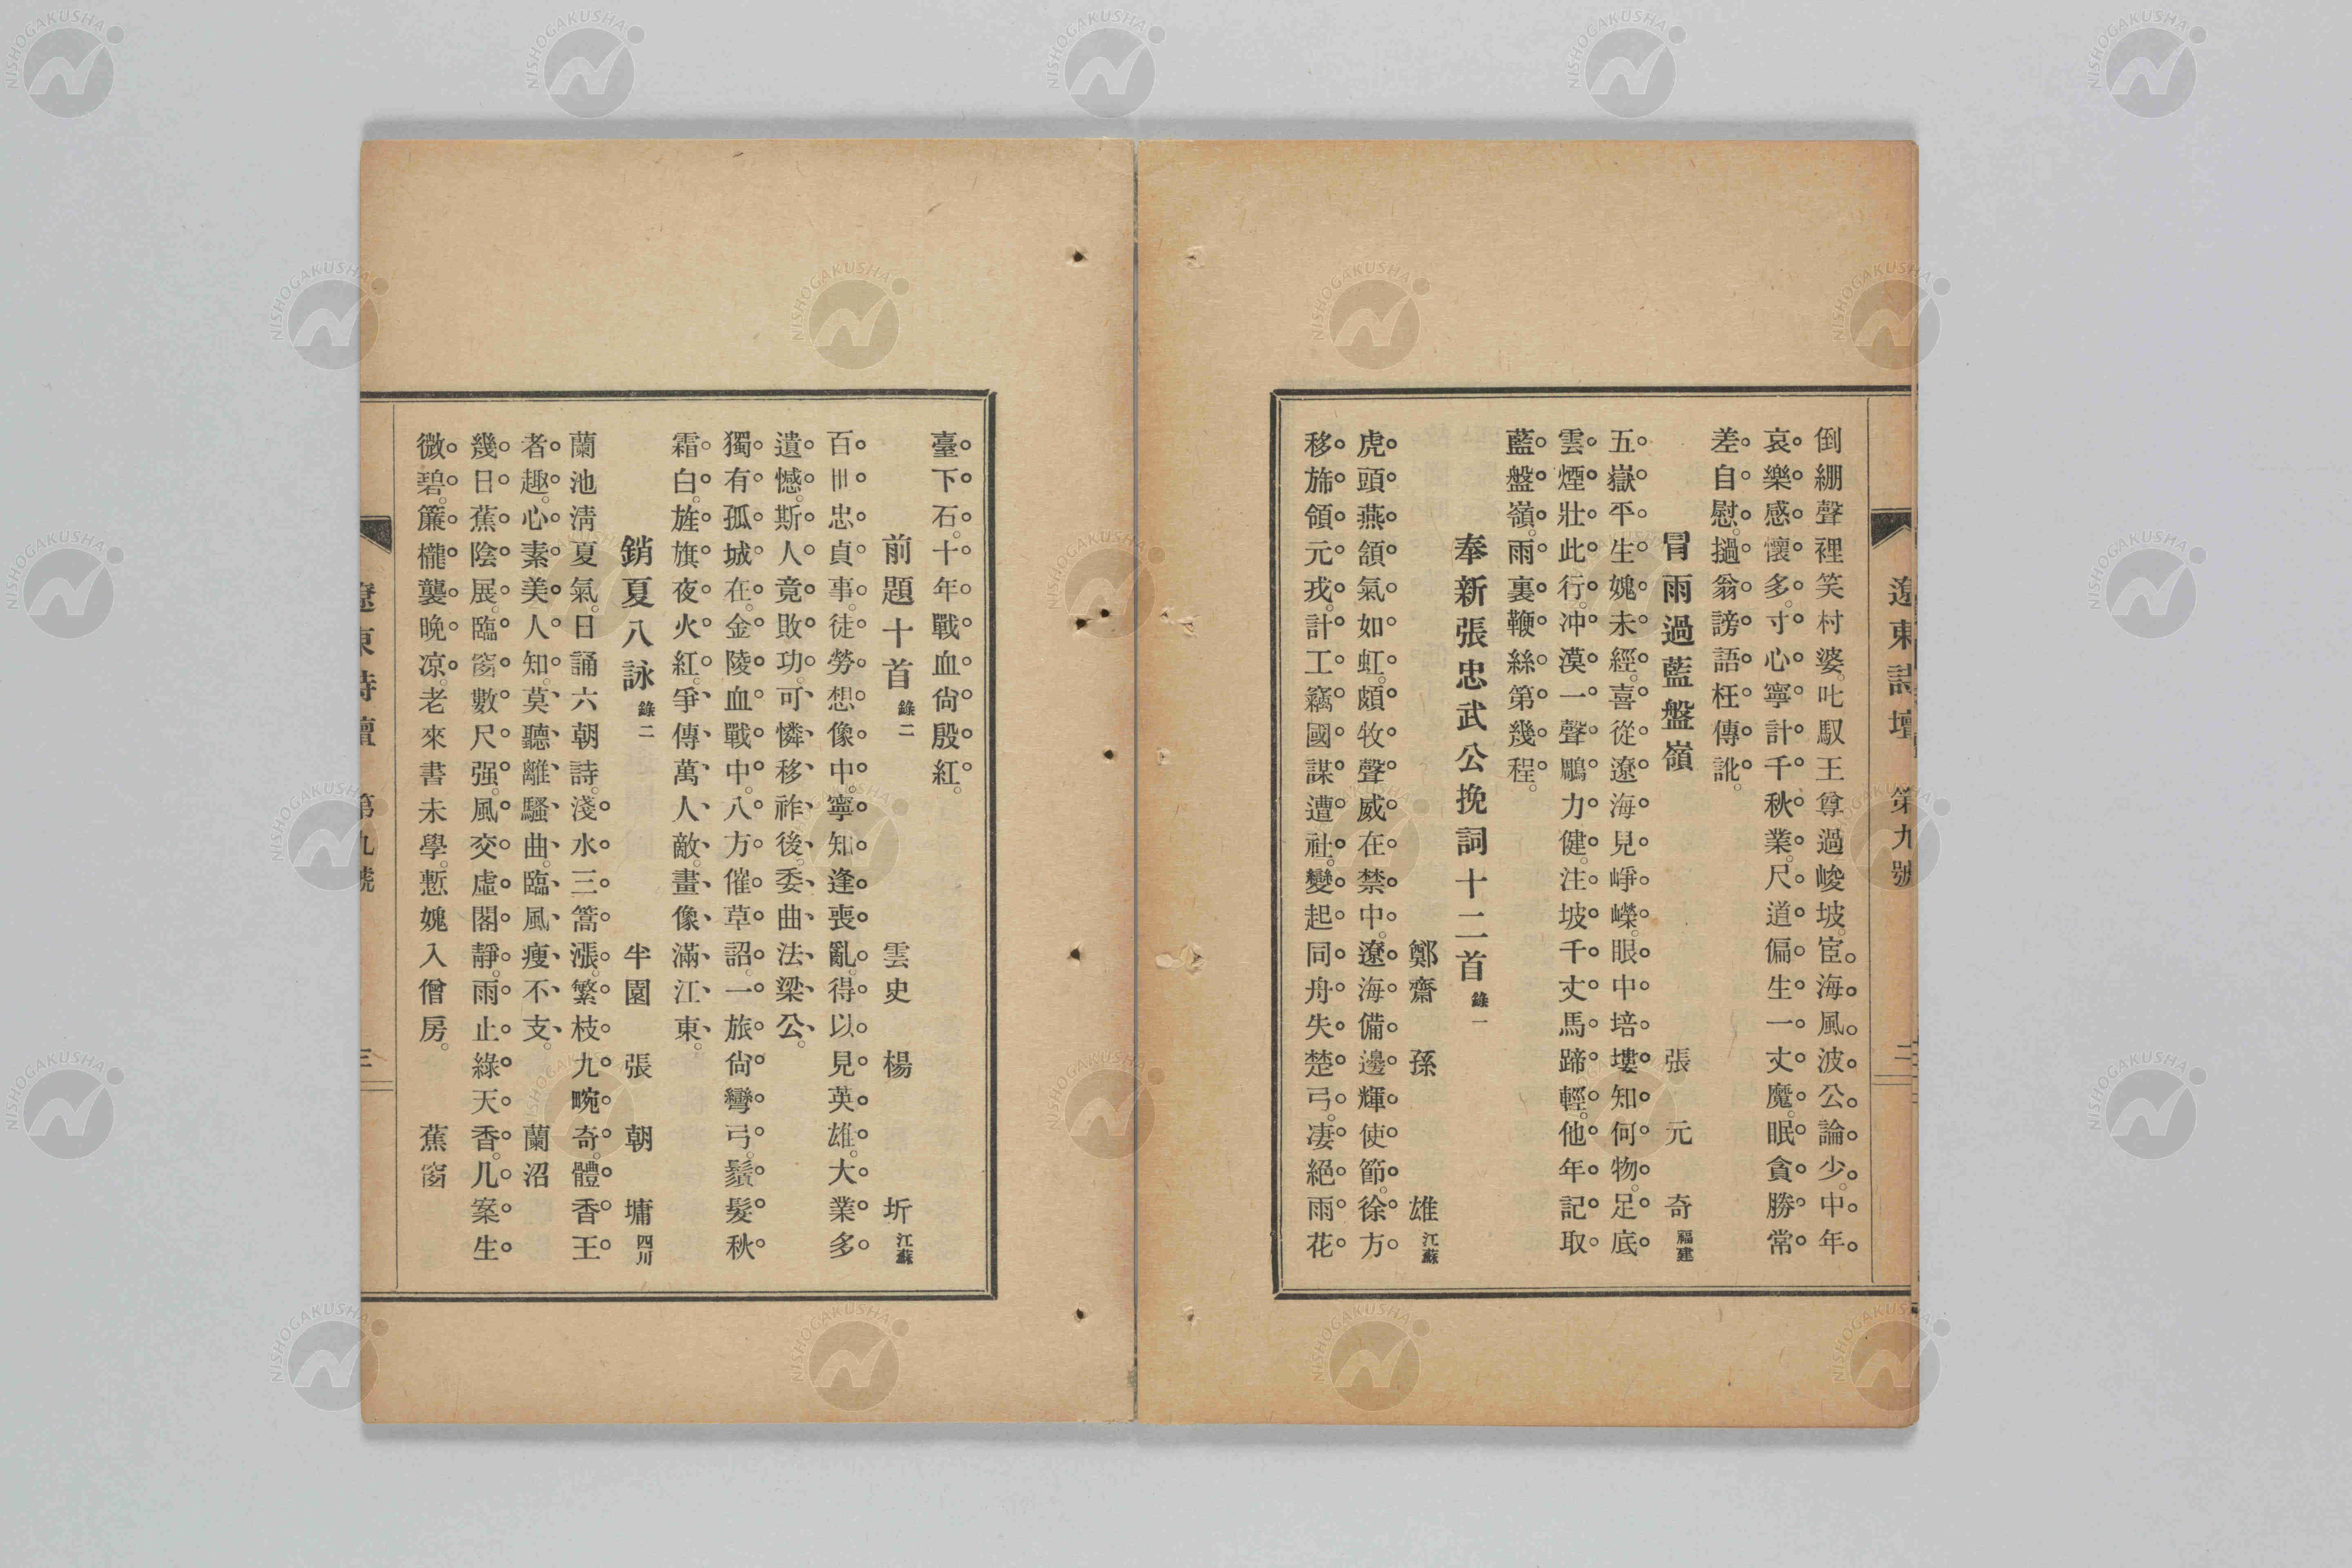 遼東詩壇 第九號 三
倒綳聲裡笑村婆。叱馭王尊過峻坡。宦海風波公論少。中年
哀樂感懷多。寸心寧計千秋業。尺道偏生一丈魔。眠貪勝常
差自慰。撾翁謗語枉傳訛。
冒雨過藍盤嶺 張元奇 福建
五嶽平生媿未經。喜從遼海見崢嶸。眼中培塿知何物。足底
雲煙壯此行。冲漠一聲鵰力健。注坡千丈馬蹄輕。他年記取
藍盤嶺。雨裏鞭絲第幾程。
奉新張忠武公挽詞十二首 錄一
鄭齋 孫雄 江蘇
虎頭燕頷氣如虹。頗牧聲威在禁中。遼海備邊輝使節。徐方
移旆領元戎。計工竊國謀遭社。變起同舟失楚弓。凄絕雨花
臺下石。十年戰血尙殷紅。
前題十首 錄二 雲史 楊圻 江蘇
百卌忠貞事。徒勞想像中。寧知逢喪亂。得以見英雄。大業多
遺憾。斯人竟敗功。可憐移祚後。委曲法梁公。
獨有孤城在。金陵血戰中。八方催草詔。一旅尙彎弓。鬚髮秋
霜白。旌旗夜火紅。爭傳萬人敵。畫像滿江東。
銷夏八詠 錄二 半園 張朝墉 四川
蘭池淸夏氣。日誦六朝詩。淺水三篙漲。繁枝九畹奇。體香王
者趣。心素美人知。莫聽離騷曲。臨風瘦不支。 蘭沼
幾日蕉陰展。臨窗數尺强。風交虛閣靜。雨止綠天香。几案生
微碧。簾櫳襲晚凉。老來書未學。慙媿入僧房。 蕉窗
遼東詩壇 第九號 三